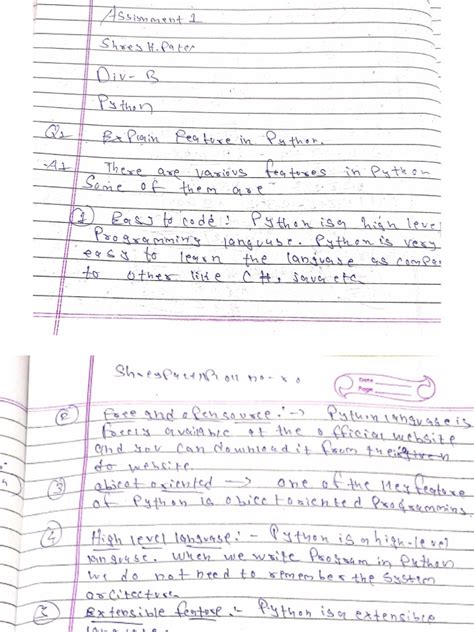 Assinment 1
Shrey H. Patel
Div- B
Python
Q1 Explain Feature in Python.
A1 There are various features in Python
Some of them are
1 Easy to code: Python is a high level
Programming language. Python is very
easy to learn the language as compa
to other like C#, Java etc.
Date
Page
2 Free and opensource :-> Python language is
freely available at the official website
and you can download it from the
do website.
3 object oriented -> one of the key feature
of Python is object oriented Programming
4 High level language:- Python is a high-level
language. When we write Program in Python
we do not need to remember the System
arcitecture.
5 Extensible feature :- Python is a extensible